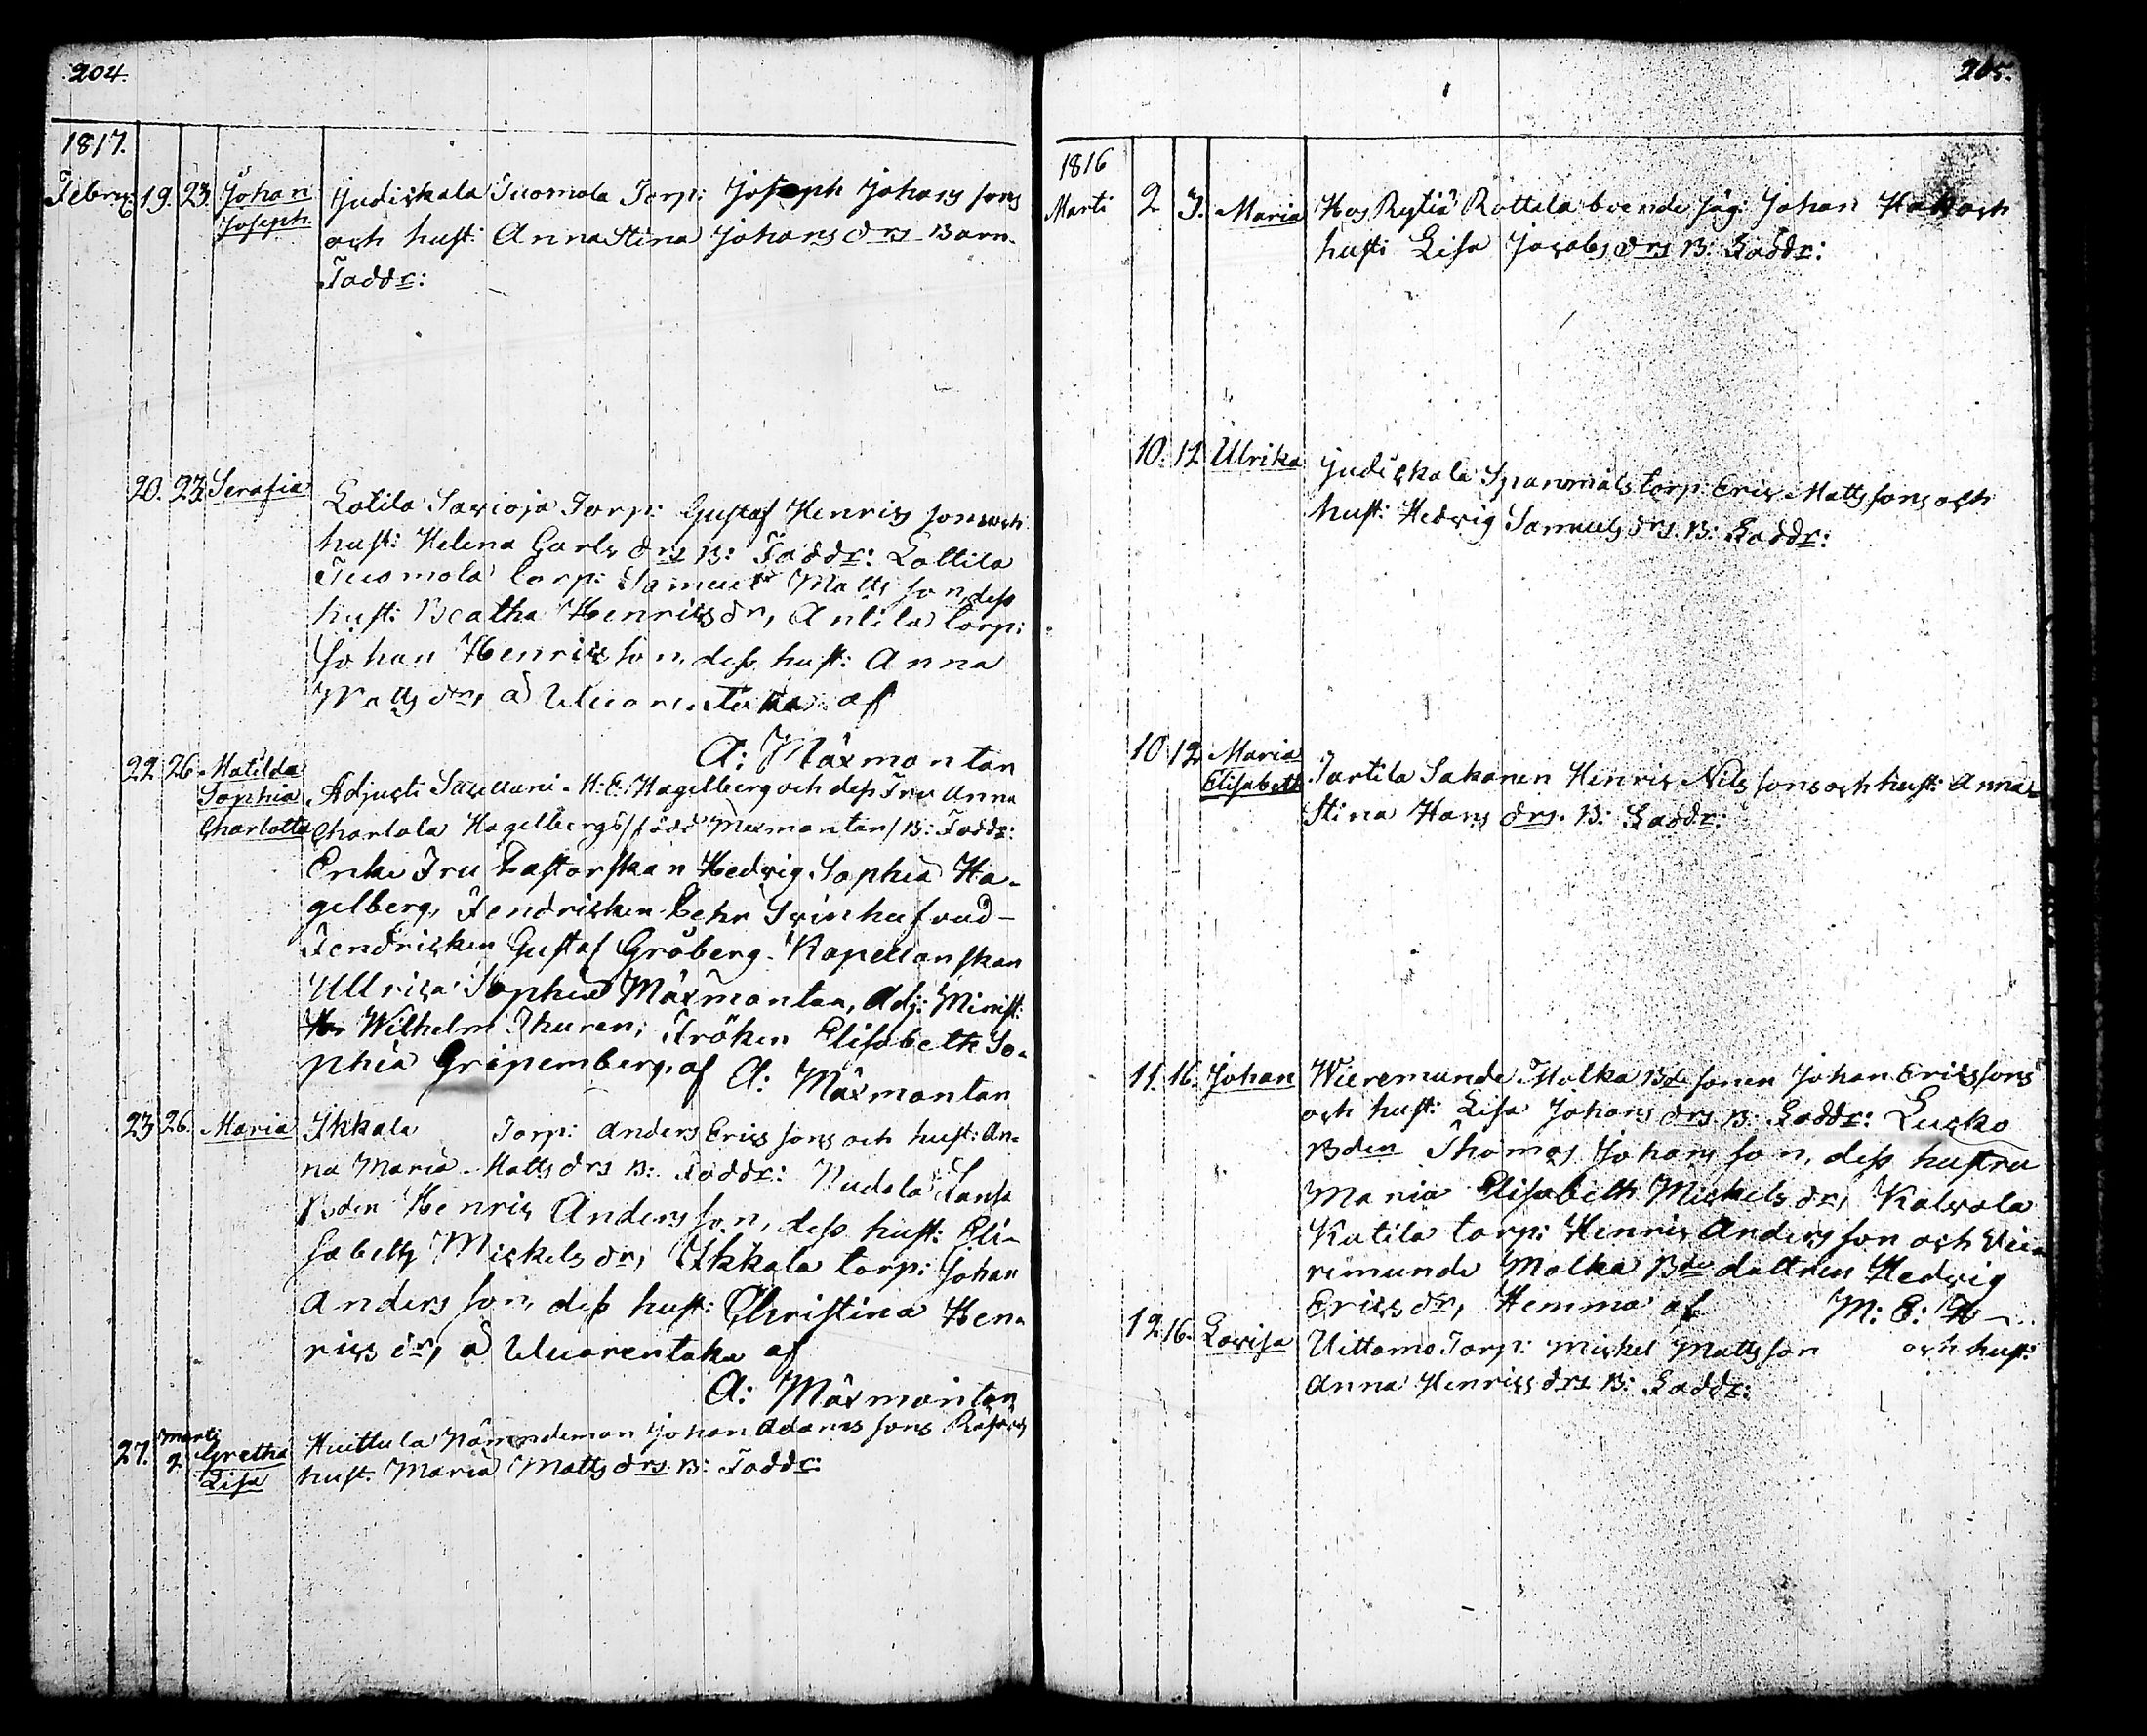 204.
1817.
Febru: 19. 23. Johan Joseph Judickala Tuomola Torp: Joseph Johans sons
och hust: Anna Stina Johans drs Barn.
Faddr:
20. 23 Serafia Lotila Savioja Torp: Gustaf Henrics sons och
hust: Helena Carls drs B: Faddr: Lottila
Tuomola torp: Samuel Matts son, dess
hust: Beatha Henricsdr, Antila torp:
Johan Henricsson, dess hust: Anna
Mattsdr, å Uuorentaka af
A: Mäxmontan
22. 26 Matilda Sophia Charlotta Adjuncti M: E: Hagelberg och dess Fru Anna
Charlota Hagelbergs /född Mexmontan/ B: Faddr:
Enke Fru Pastorskan Hedvig Sophia Ha-
gelberg, Fendricken Pehr Svinhufvud-
Fendricken Gustaf Gröberg- Kapellanskan
Ullrica Sophia Mäxmontan, Adj: Minist:
Wilhelm Thuren; Fröken Elisabeth So-
phia Gripemberg, af A: Mäxmontan
23 26. Maria Ikkala Torp: Anders Erics sons och hust: An-
na Maria Matts drs B: Faddr: Nudola
Bden Henric Anders son, dess hust: Eli-
sabeth Mickelsdr, Ikkala torp: Johan
Anders son, dess hust: Christina Hen-
ricsdr, å Uuorentaka af
A: Mäxmontan
27. Marti 2. Gretha Lisa Huittula Nämndeman Johan Adams sons
hust: Maria Matts drs B: Faddr:
205.
1816
Marti 2 3. Maria Hos Rytiä Rottala boende Johan och
hust: Lisa Jacobs drs B: Faddr:
10. 12. Ulrika Judickala Spanmåls torp: Eric Matts sons och
hust: Hedvig Samuels drs. B: Faddr:
10 12 Maria Elisabeth Partila Sakanen Henric Nils sons och hust: Anna
Stina Hans drs. B: Faddr:
11. 16. Johan Wieremunde Molka Bde sonen Johan Erics sons
och hust: Lisa Johans drs B: Faddr: Lucko
Bden Thomas Johans son, dess hustru
Maria Elisabeth Mickelsdr, Kalvola
Kutila torp: Henric Anders son och Vie
remunde Molka Bde dottren Hedvig
Ericsdr, Hemma af M: E: H
12. 16. Lovisa Uittamo Torp: Mickel Matts son och hust:
Anna Henrics drs B: Faddr: